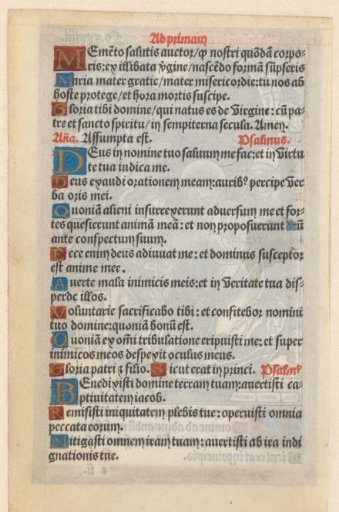 Ad primam
Memẽto salutis auctor/ꝙ nostri quõdã corpo-
ris:ex illibata v̾gine/nascẽdo formã sũpseris
Maria mater gratie/mater misericordie:tu nos ab
hoste protege/et hora mortis suscipe.
Gloria tibi domine/qui natus es de Virgine:cũ pa-
tre et sancto spiritu/in sempiterna secula. Amen.
Aña. Assumpta est. Psalmus.
Deus in nomine tuo saluum me fac:et in Virtu
te tua iudica me.
Deus exaudi orationem meam:auribꝰ percipe Ver
ba oris mei.
Quoniã alieni insurrexerunt aduersum me et for-
tes quesierunt animã meã: et non proposuerunt deũ
ante conspectum suum.
Ecce enim deus adiuuat me: et dominus susceptor
est anime mee.
Auerte mala inimicis meis:et in Veritate tua dis-
perde illos.
Voluntarie sacrificabo tibi: et confitebor nomini
tuo domine:quoniã bonũ est.
Quoniã ex oñi tribulatione eripuisti me: et super
inimicos meos despexit oculus meus.
Gloria patri ⁊ filio. Sicut erat in princi. Psalmꝰ
Benedixisti domine terram tuam:auertisti ca-
ptiuitatem iacob.
Remisisti iniquitatem plebis tue: operuisti omnia
peccata eorum.
Mitigasti omnem iram tuam: auertisti ab ira indi
gnationis tue.